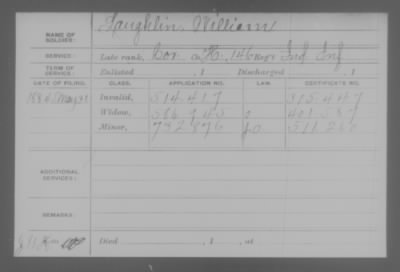 Laughlin, William
NAME OF SOLDIER:
SERVICE: Late rank, Cor. Co. H, 146 Reg't Ind Inf
TERM OF SERVICE: Enlisted , 1 Discharged , 1
DATE OF FILING. CLASS. APPLICATION NO. LAW. CERTIFICATE NO.
1884 May 31 Invalid, 514.417 315.447
Widow, 401.587
Minor, 732.876
ADDITIONAL SERVICES:
REMARKS:
Died , 1 , at